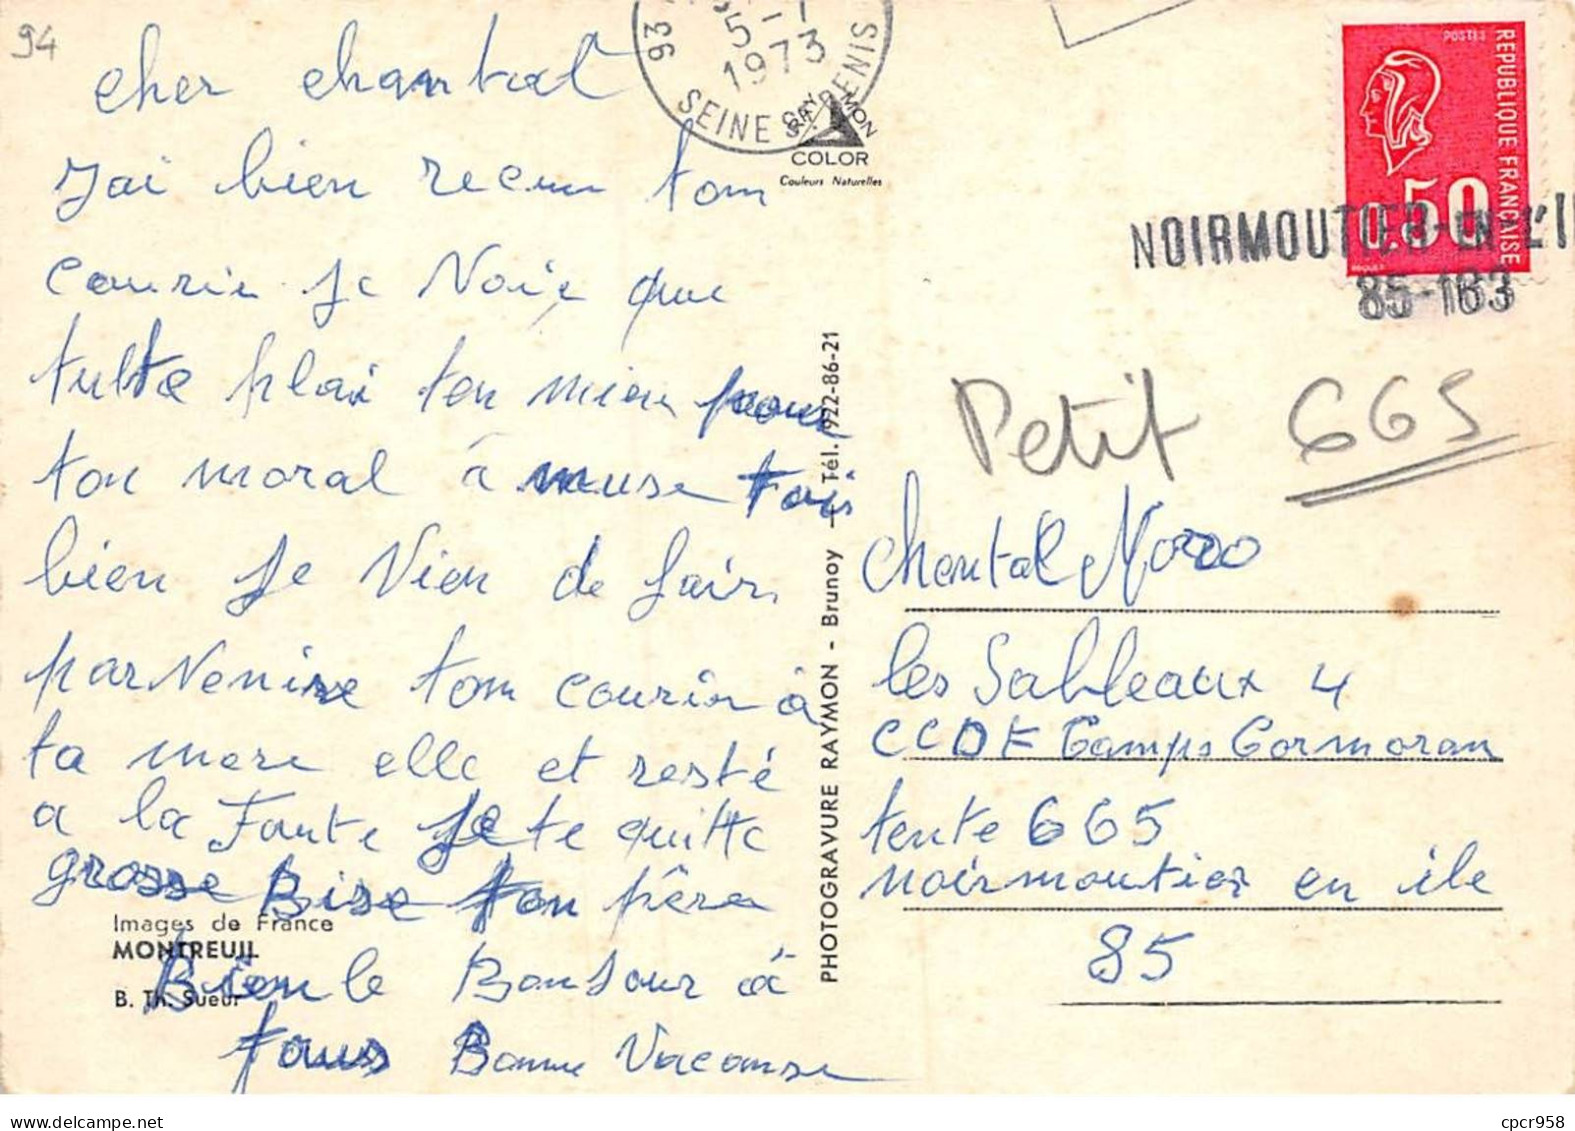 94
cher chantal
Jai bien recu tom
courie Je Voix que
tulta plai ton mieu pour
ton moral à muse Tois
bien Je Vien de fair
parvenire tom courie à
ta mere elle et resté
a la Fante Je te quitte
grosse Bise ton père
Bien le Bonsour à
tous Bonne Vacanse
Images de France
MONTREUIL
B. Th. Sueur
93
5-
1973
SEINE S. DENIS
RAYMON
COLOR
Couleurs Naturelles
PHOTOGRAVURE RAYMON - Brunoy - Tél. 922-86-21
POSTES
REPUBLIQUE FRANÇAISE
0.50
NOIRMOUTIER-EN-L'I
85-163
Petit 665
Chantal
les Sableaux 4
CCDE Camps Cormoran
tente 665
noirmoutier en ile
85
cpcr958